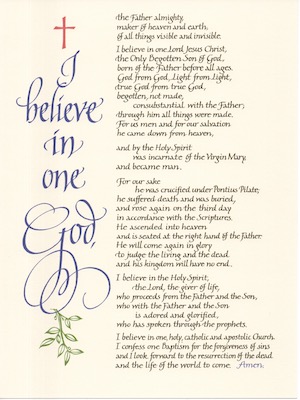 I
believe
in
one
God,
the Father almighty,
maker of heaven and earth,
of all things visible and invisible.
I believe in one Lord Jesus Christ,
the Only Begotten Son of God,
born of the Father before all ages.
God from God, Light from Light,
true God from true God,
begotten, not made,
consubstantial with the Father;
through him all things were made.
For us men and for our salvation
he came down from heaven,
and by the Holy Spirit
was incarnate of the Virgin Mary,
and became man.
For our sake
he was crucified under Pontius Pilate;
he suffered death and was buried,
and rose again on the third day
in accordance with the Scriptures.
He ascended into heaven
and is seated at the right hand of the Father.
He will come again in glory
to judge the living and the dead
and his kingdom will have no end.
I believe in the Holy Spirit,
the Lord, the giver of life,
who proceeds from the Father and the Son,
who with the Father and the Son
is adored and glorified,
who has spoken through the prophets.
I believe in one, holy, catholic and apostolic Church.
I confess one Baptism for the forgiveness of sins
and I look forward to the resurrection of the dead
and the life of the world to come. Amen.